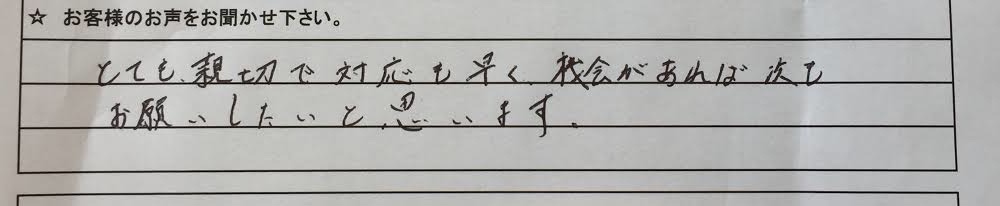 ☆ お客様のお声をお聞かせ下さい。
とても、親切で対応も早く、機会があれば次も
お願いしたいと思います。